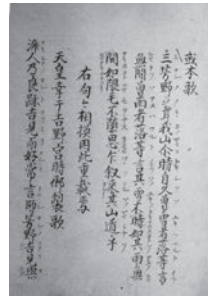 或本歌
三芳野之耳我山尓時自久曽雪者落等言
無間曽雨者落等言其雪不時如其雨
無間如隈毛不堕思乍叙来其山道乎
右句々相換因此重載焉
天皇幸于吉野宮時御製歌
淑人乃良跡吉見而好常言師芳野吉見与